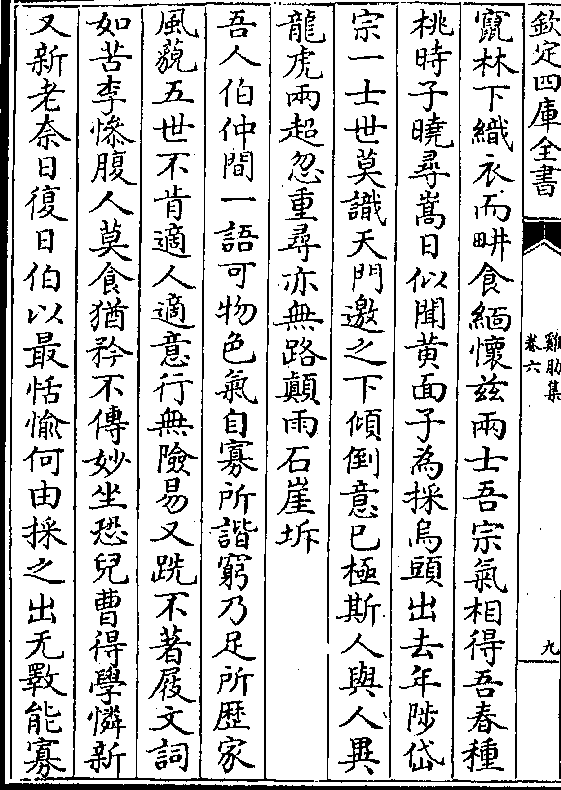 欽定四庫全書
雞肋集
卷六
九
竄林下織衣而畊食緬懷兹兩士吾宗氣相得吾春種
桃時子曉尋嵩日似聞黄面子為採烏頭出去年陟岱
宗一士世莫識天門邀之下傾倒意已極斯人與人異
龍虎兩超忽重尋亦無路顛雨石崖坼
吾人伯仲間一語可物色氣自寡所諧窮乃足所歴家
風藐五世不肯適人適意行無險易又跣不著屐文詞
如苦李慘腹人莫食猶矜不傳妙坐恐兒曹得學憐新
又新老奈日復日伯以最恬愉何由採之出无斁能寡